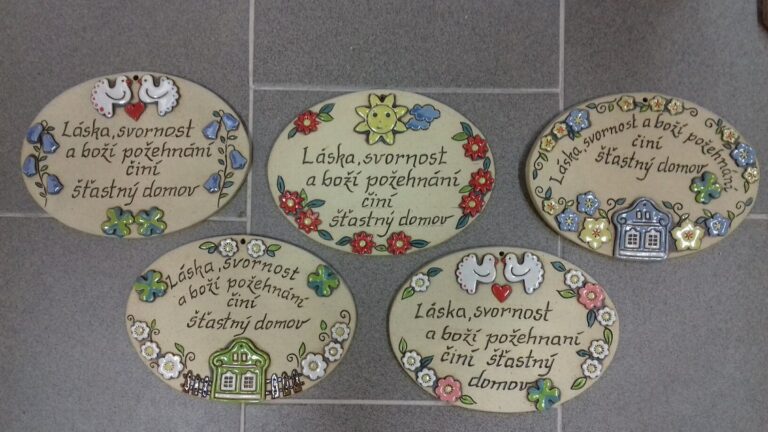 Láska, svornost
a boží požehnání
činí
šťastný domov
Láska, svornost
a boží požehnání
činí
šťastný domov
Láska, svornost a boží požehnání
činí
šťastný domov
Láska, svornost
a boží požehnání
činí
šťastný domov
Láska, svornost
a boží požehnaní
činí šťastný
domov